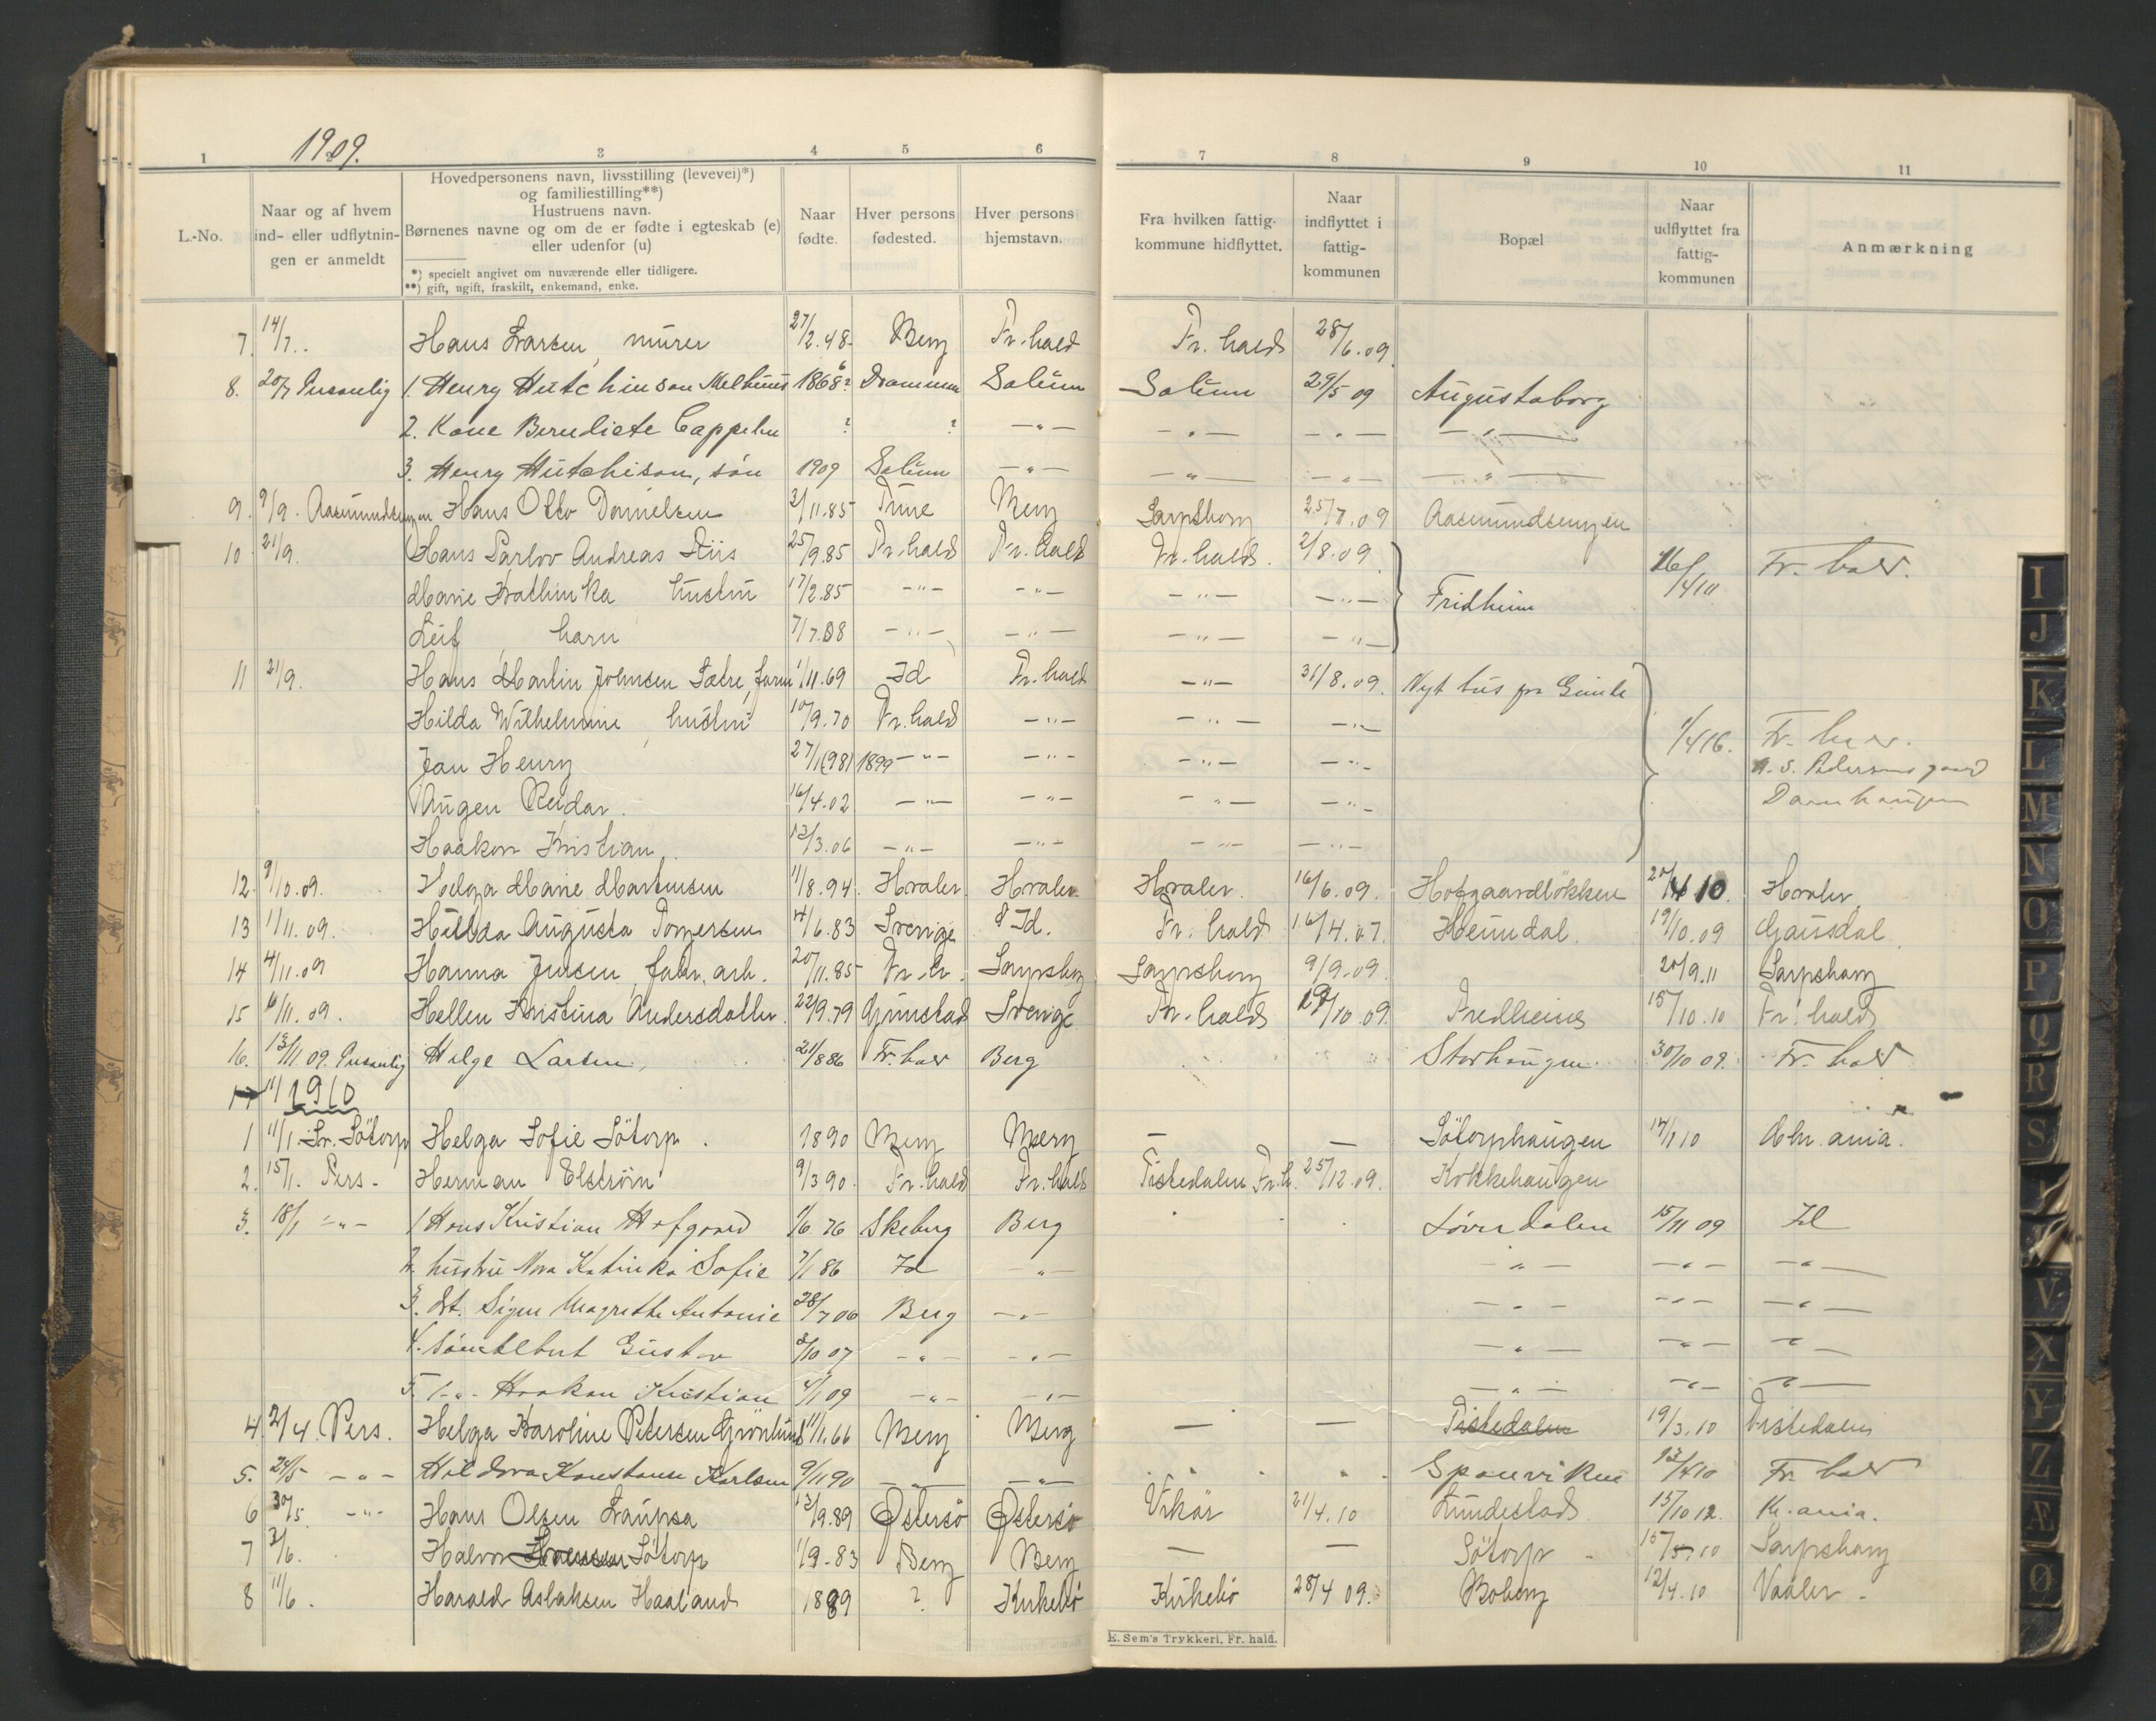 1909.
1 3 4 5 6 7 8 9 10 11
L.-No.
Naar og af hvem ind- eller udflytnin- gen er anmeldt
Hovedpersonens navn, livsstilling (levevei)*) og familiestilling**) Hustruens navn. Børnenes navne og om de er fødte i egteskab (e) eller udenfor (u)
*) specielt angivet om nuværende eller tidligere.
**) gift, ugift, fraskilt, enkemand, enke.
Naar fødte.
Hver persons fødested.
Hver persons hjemstavn.
Fra hvilken fattig- kommune hidflyttet.
Naar indflyttet i fattig- kommunen
Bopæl
Naar udflyttet fra fattig- kommunen
Anmærkning
7. 14/7. Hans Larsen, murer 27/2.48. Berg Fr.hald Fr.hald 28/6.09.
8. 20/7 Personlig 1. Henry Hutchinson Melhuus 1868? Drammen Solum Solum 29/5 09 Augustaborg
2. Kone Berudiete Cappelen ? ? —"— —"— —"— —"—
3. Henry Hutchison, søn 1909 Solum —"— —"— —"— —"—
9. 9/9. Aasmundsengen Hans Otto Danielsen 3/11.85 Tune Berg Sarpsborg 25/7.09 Aasmundsengen
10 21/9. Hans Parlov Andreas Riis 25/9.85 Fr.hald Fr.hald Fr.hald. 2/8.09. Fridheim 16/4 11 Fr. hald.
Marie Kathinka hustru 17/2.85 —"— —"— —"— —"—
Leif, barn 7/7.08 —"— —"— —"— —"—
11 21/9. Hans Martin Johnsen Sætre, form 1/11.69 Id Fr.hald —"— 31/8.09. Nyt hus pr Gimle
Hilda Wilhelmine, hustru 10/9.70 Fr.hald —"— —"— —"— 1/4 16. Fr. hald.
Jan Henry 27/1(98) 1899 —"— —"— —"— —"— A.S. Pedersens gaard
Augen Reidar. 16/4.02 —"— —"— —"— —"—
Haakon Kristian. 13/3.06 —"— —"— —"— —"—
12. 9/10.09. Helga Marie Martinsen 11/8.94. Hvaler Hvaler Hvaler. 16/6.09. Hofgaardløkken 20/4 10. Hvaler
13 11/11.09. Hulda Augusta Torgersen 14/6.83 Sverige Id. Fr. hald 16/4.07. Heimdal. 19/10.09 Gausdal.
14 4/11.09 Hanna Jensen, fabr. arb. 20/11.85 Fr.h. Sarpsborg Sarpsborg 9/9.09. 20/9.11 Sarpsborg
15 6/11.09. Hellen Kristina Andersdatter. 22/9.79 Sverige Fr.hald /10.09. Fredheim 15/10.10 Fr.hald
16. 13/11 09. Personlig Helge Larsen, 21/8 86 Fr. hald Berg Storhaugen 30/10 09. Fr. hald
1910
1 11/1. Sr. Søtorp Helga Sofie Søtorp. 1890 Berg Berg — — Søtorphaugen 14/1 10 Chr.ania.
2. 15/1. Pers. Herman Elstrøm 9/3 90. Fr.hald Fr.hald Tistedalen Fr.h. 25/12.09. Kokkehaugen
3. 18/1 —"— 1 Hans Kristian Hofgaard 1/6 76 Skeberg Berg Løverdalen 15/11 09 Id
2. hustru Nora Katinka Sofie 7/1 86 Id —"— —"— —"— —"—
3. dt. Signe Magrethe Antonie 28/7 06 Berg —"— —"— —"— —"—
4. søn Albert Gustav 8/10 07 —"— —"— —"— —"— —"—
5. —"— Haakon Kristian 4/1 09 —"— —"— —"— —"— —"—
4. 2/4. Pers. Helga Karoline Petersen Grønlund 11/1.66 Berg Berg — — Tistedalen 19/3.10 Tistedalen
5. 24/5 —"— Hildora Konstanse Karlsen 9/11 90 —"— —"— Sponviken 13/4 10 Fr. hald
6 30/5. —"— Hans Olsen Laupsa 13/9.89 Østersø Østersø Vikør 21/4.10 Lundestad 15/10 12. Kr.ania.
7 2/6. Halvor Søtorp 1/9-83 Berg Berg — — Søtorp 15/5.10 Sarpsborg
8 11/6. Harald Aslaksen Haaland 1889 ? Kirkebø Kirkebø 28/4 09. Boberg 12/4.10 Vaaler.
E. Sem's Trykkeri, Fr. hald.
I
J
K
L
M
N
O
P
Q
R
S
V
X
Y
Z
Æ
Ø